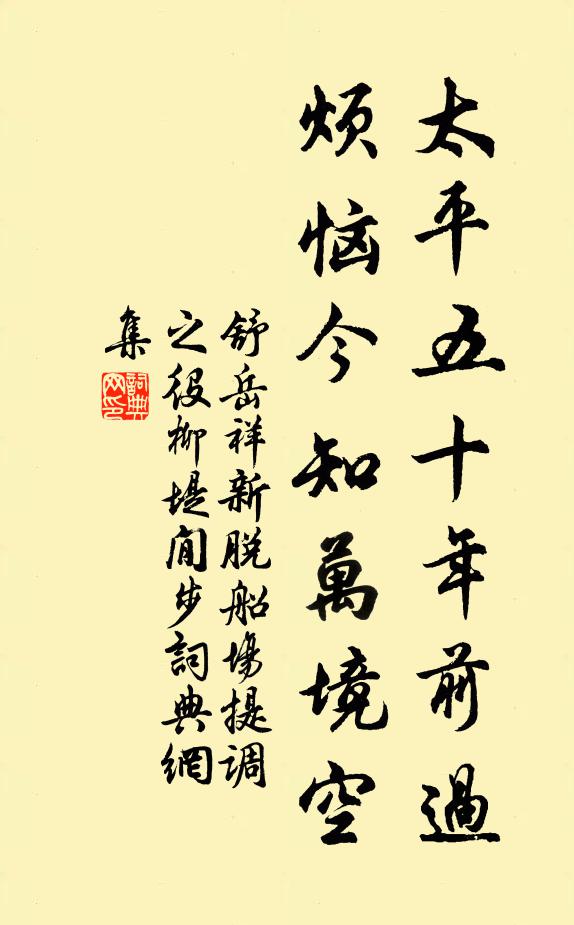 太平五十年前過
煩惱今知萬境空
舒岳祥新脫船場提調
之役柳堤閒步詞典網
集
詞典
网印